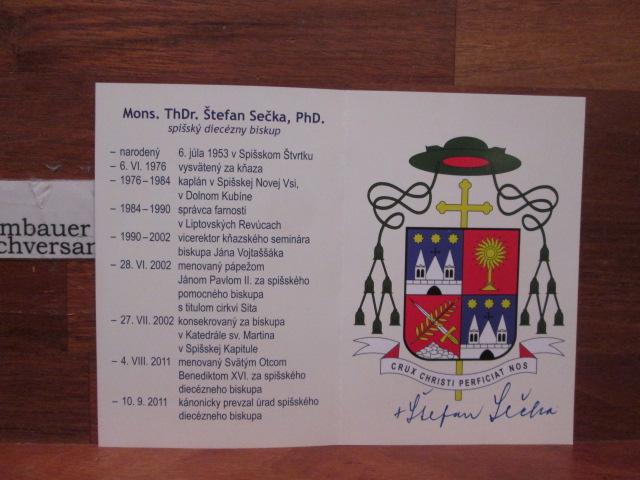 Mons. ThDr. Štefan Sečka, PhD.
spišský diecézny biskup
– narodený 6. júla 1953 v Spišskom Štvrtku
– 6. VI. 1976 vysvätený za kňaza
– 1976–1984 kaplán v Spišskej Novej Vsi,
v Dolnom Kubíne
– 1984–1990 správca farnosti
v Liptovských Revúcach
– 1990–2002 vicerektor kňazského seminára
biskupa Jána Vojtaššáka
– 28. VI. 2002 menovaný pápežom
Jánom Pavlom II. za spišského
pomocného biskupa
s titulom cirkvi Sita
– 27. VII. 2002 konsekrovaný za biskupa
v Katedrále sv. Martina
v Spišskej Kapitule
– 4. VIII. 2011 menovaný Svätým Otcom
Benediktom XVI. za spišského
diecézneho biskupa
– 10. 9. 2011 kánonicky prevzal úrad spišského
diecézneho biskupa
CRUX CHRISTI PERFICIAT NOS
+ Štefan Sečka
mbauer
chversan